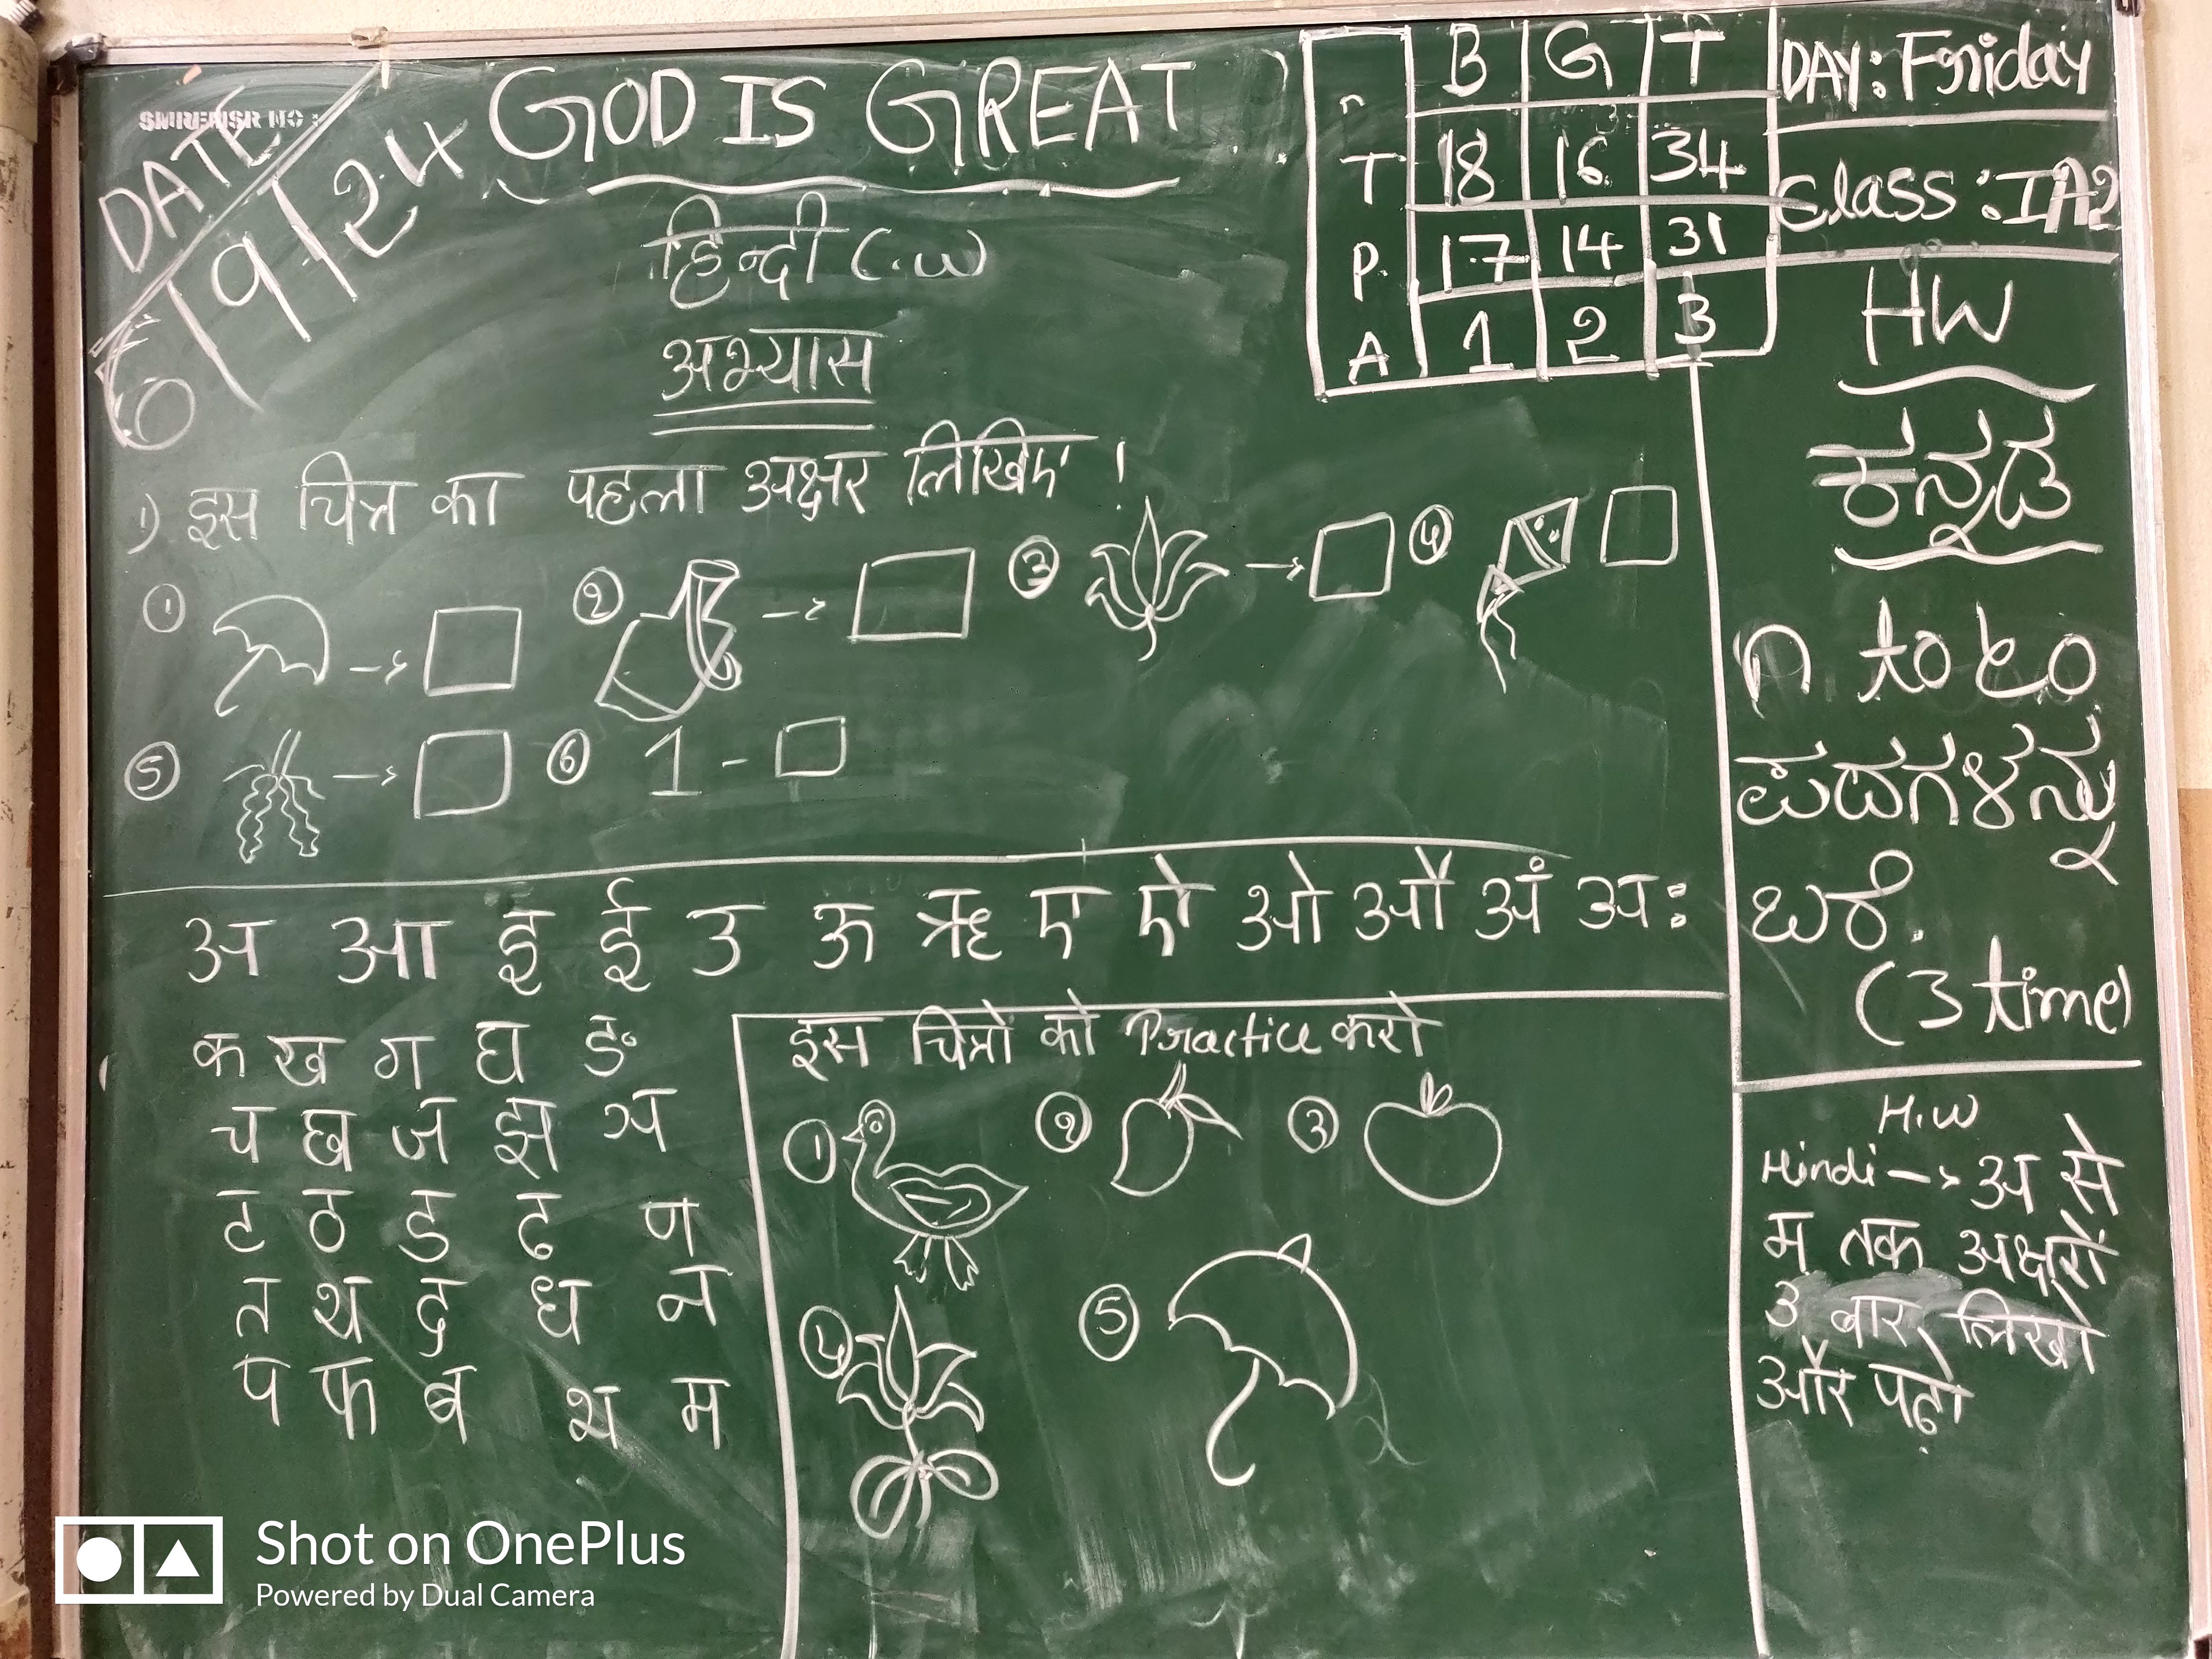 GOD IS GREAT
DATE
6/9/24
हिन्दी C.W
अभ्यास
B G T
T 18 16 34
P 17 14 31
A 1 2 3
DAY: Friday
Class: I A2
HW
ಕನ್ನಡ
ಗ to ಲಂ
ಪದಗಳನ್ನು
ಬರೆ.
(3 time)
1) इस चित्र का पहला अक्षर लिखिए !
① → ② → ③ → ④
⑤ → ⑥ 1 -
अ आ इ ई उ ऊ ऋ ए ऐ ओ औ अं अः
क ख ग घ ङ
च छ ज झ ञ
ट ठ ड ढ ण
त थ द ध न
प फ ब भ म
इस चित्रो को Practice करो
① ② ③
④ ⑤
H.W
Hindi → अ से
म तक अक्षरों
3 बार लिखो
और पढ़ो
Shot on OnePlus
Powered by Dual Camera